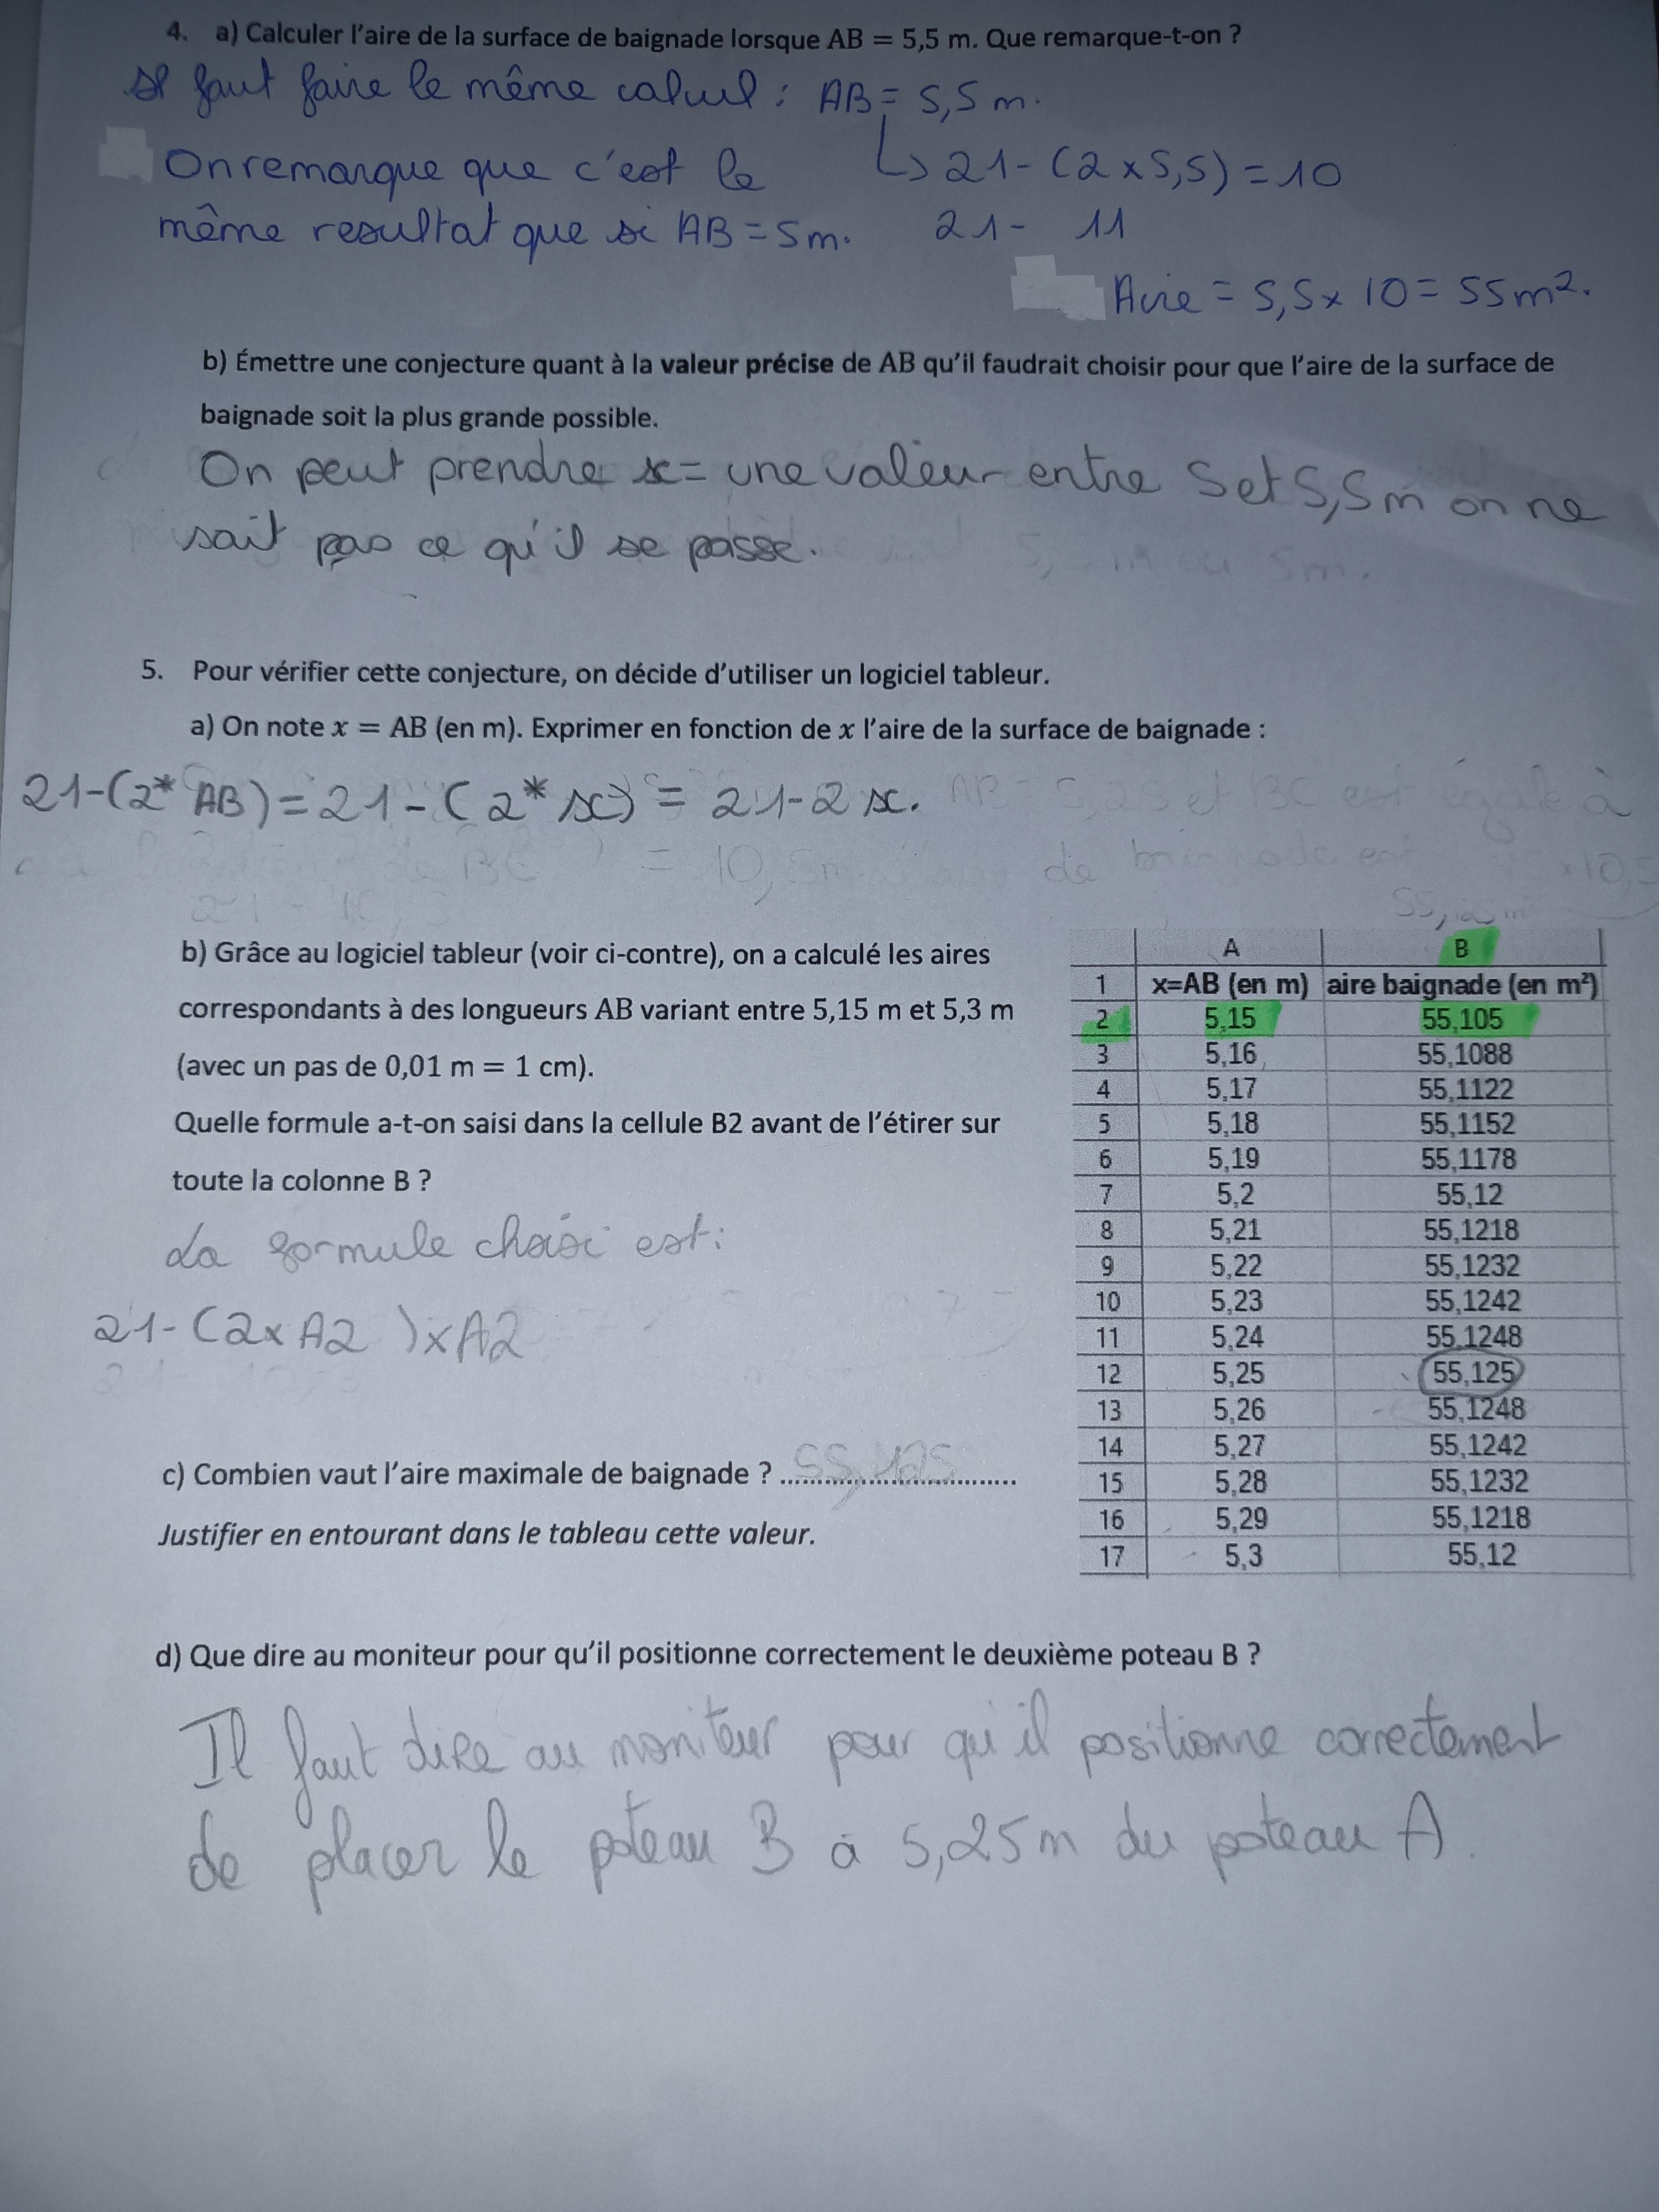 4. a) Calculer l'aire de la surface de baignade lorsque AB = 5,5 m. Que remarque-t-on ?
Il faut faire le même calcul : AB = 5,5 m.
On remarque que c'est le
↳ 21 - (2 x 5,5) = 10
même resultat que si AB = 5m.
21 - 11
Aire = 5,5 x 10 = 55 m².
b) Émettre une conjecture quant à la valeur précise de AB qu'il faudrait choisir pour que l'aire de la surface de
baignade soit la plus grande possible.
On peut prendre x = une valeur entre 5 et 5,5 m on ne
sait pas ce qu'il se passe.
5. Pour vérifier cette conjecture, on décide d'utiliser un logiciel tableur.
a) On note x = AB (en m). Exprimer en fonction de x l'aire de la surface de baignade :
21-(2* AB) = 21 - (2* x) = 21-2x.
b) Grâce au logiciel tableur (voir ci-contre), on a calculé les aires
correspondants à des longueurs AB variant entre 5,15 m et 5,3 m
(avec un pas de 0,01 m = 1 cm).
Quelle formule a-t-on saisi dans la cellule B2 avant de l'étirer sur
toute la colonne B ?
La formule choisi est :
21 - (2 x A2) x A2
A B
1 x=AB (en m) aire baignade (en m²)
2 5,15 55,105
3 5,16 55,1088
4 5,17 55,1122
5 5,18 55,1152
6 5,19 55,1178
7 5,2 55,12
8 5,21 55,1218
9 5,22 55,1232
10 5,23 55,1242
11 5,24 55,1248
12 5,25 55,125
13 5,26 55,1248
14 5,27 55,1242
15 5,28 55,1232
16 5,29 55,1218
17 5,3 55,12
c) Combien vaut l'aire maximale de baignade ? 55,125
Justifier en entourant dans le tableau cette valeur.
d) Que dire au moniteur pour qu'il positionne correctement le deuxième poteau B ?
Il faut dire au moniteur pour qu'il positionne correctement
de placer le poteau B à 5,25m du poteau A.